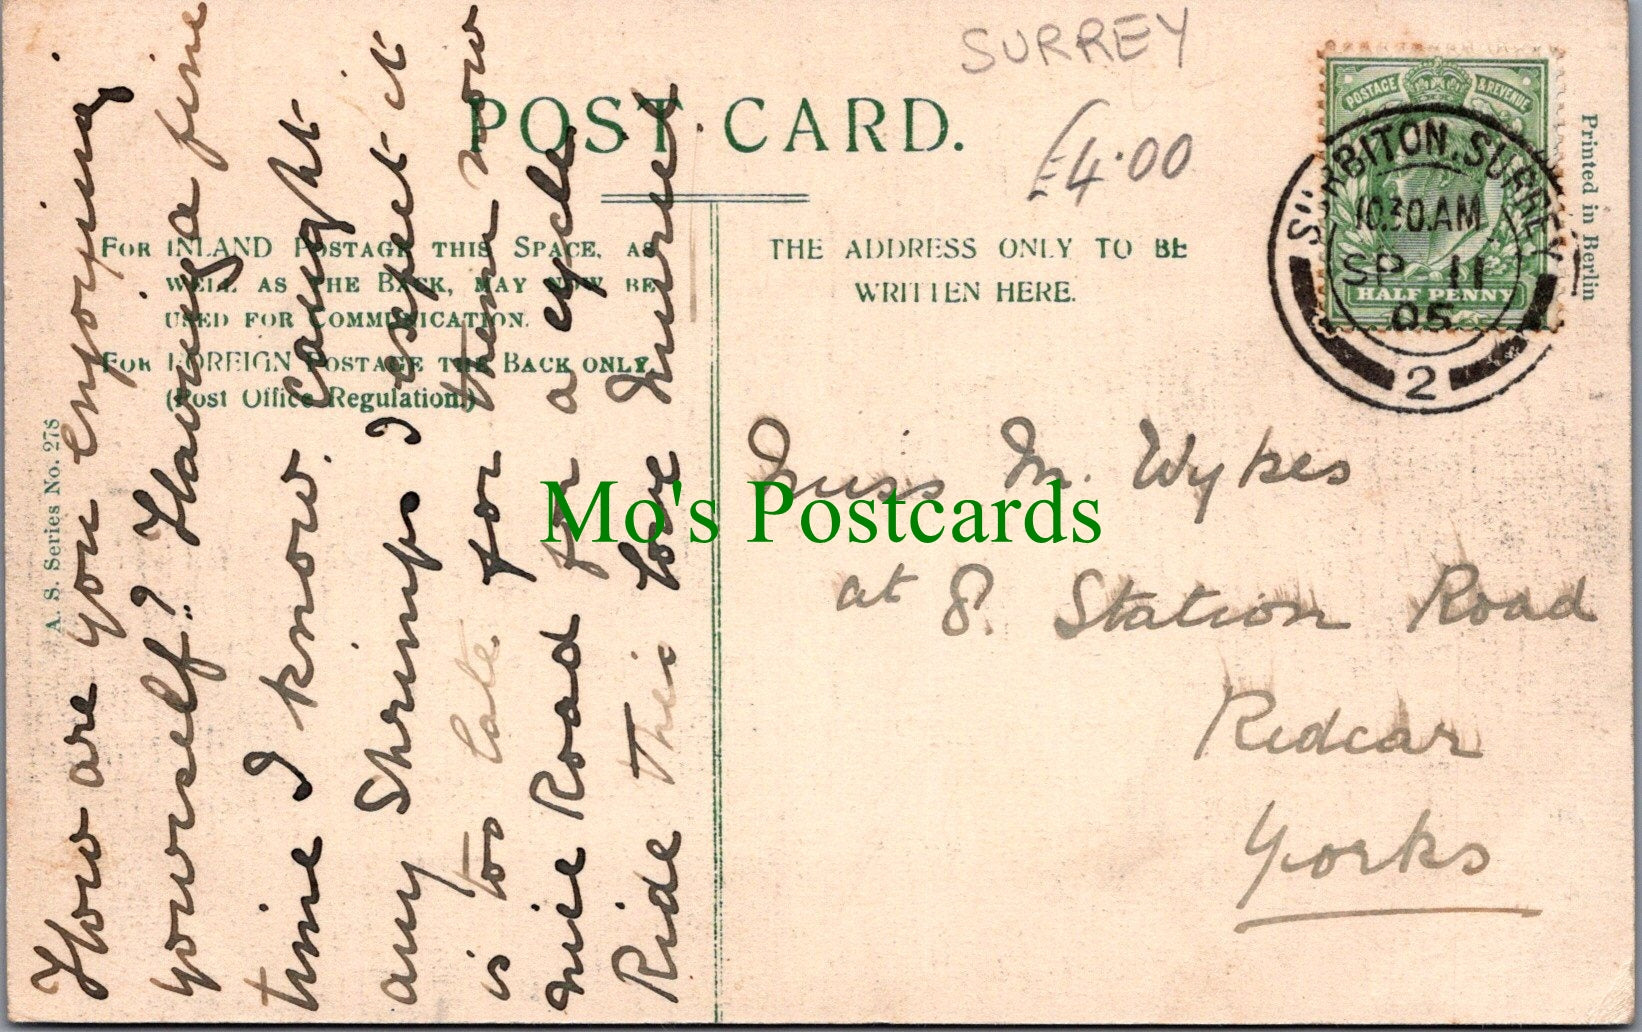 SURREY
£4.00
POST CARD.
FOR INLAND POSTAGE THIS SPACE, AS
WELL AS THE BACK, MAY NOW BE
USED FOR COMMUNICATION.
FOR FOREIGN POSTAGE THE BACK ONLY.
(Post Office Regulation.)
THE ADDRESS ONLY TO BE
WRITTEN HERE.
POSTAGE & REVENUE
HALF PENNY
SURBITON. SURREY
10.30.AM
SP 11
05
2
Printed in Berlin
A. S. Series No. 278
How are you enjoying
yourself? Having a fine
time I know. Caught
any Shrimps I expect it
is too late for them now
nice Road for a cycle
Ride This love Muriel
Miss M. Wykes
at 8. Station Road
Redcar
Yorks
Mo's Postcards